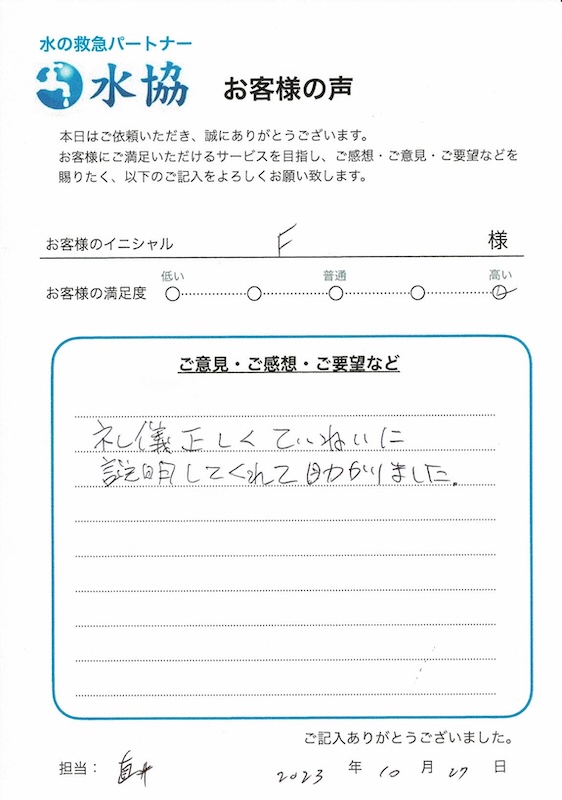 水の救急パートナー
水協 お客様の声
本日はご依頼いただき、誠にありがとうございます。
お客様にご満足いただけるサービスを目指し、ご感想・ご意見・ご要望などを
賜りたく、以下のご記入をよろしくお願い致します。
お客様のイニシャル F 様
低い 普通 高い
お客様の満足度
ご意見・ご感想・ご要望など
礼儀正しくていねいに
説明してくれて助かりました。
ご記入ありがとうございました。
担当： 2023 年 10 月 27 日